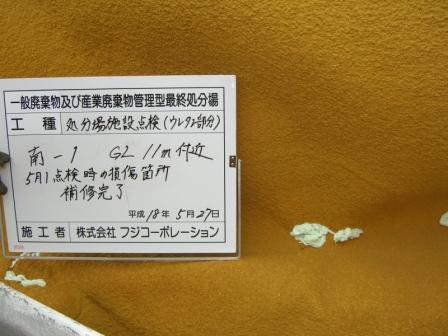 一般廃棄物及び産業廃棄物管理型最終処分場
工 種 処分場施設点検(ウレタン部分)
南-1 GL 11m付近
5月1点検時の損傷箇所
補修完了
平成18年5月27日
施工者 株式会社 フジコーポレーション